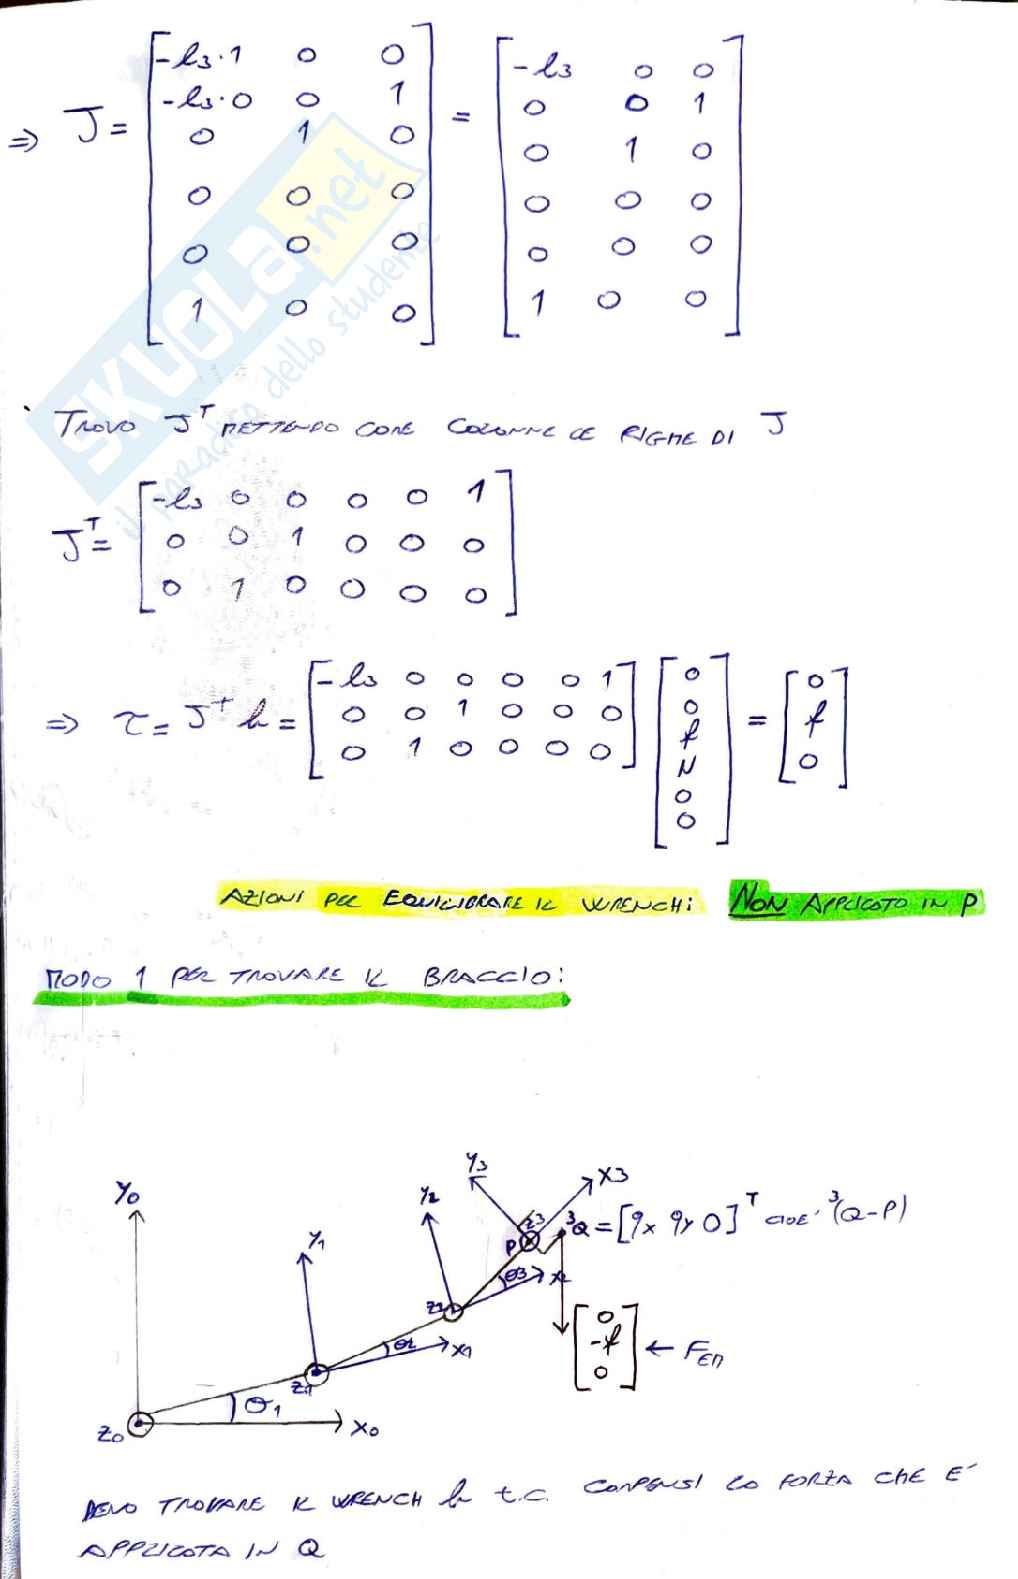 ⇒ J = [-l3·1 0 0; -l3·0 0 1; 0 1 0; 0 0 0; 0 0 0; 1 0 0] = [-l3 0 0; 0 0 1; 0 1 0; 0 0 0; 0 0 0; 1 0 0]
SKUOLA.net
il paradiso dello studente
TROVO J^T METTENDO COME COLONNE LE RIGHE DI J
J^T = [-l3 0 0 0 0 1; 0 0 1 0 0 0; 0 1 0 0 0 0]
⇒ τ = J^T h = [-l3 0 0 0 0 1; 0 0 1 0 0 0; 0 1 0 0 0 0] [0; 0; f; N; 0; 0] = [0; f; 0]
AZIONI PER EQUILIBRARE IL WRENCH: NON APPLICATO IN P
MODO 1 PER TROVARE IL BRACCIO:
Y0
Y1
Y2
Y3
X3
Z3
P
³Q = [qx qy 0]^T CIOE' ³(Q-P)
θ3
X2
Z2
[0; -f; 0] ← FEM
θ2
X1
Z1
θ1
Z0
X0
DEVO TROVARE IL WRENCH h t.c. COMPENSI LA FORZA CHE E'
APPLICATA IN Q